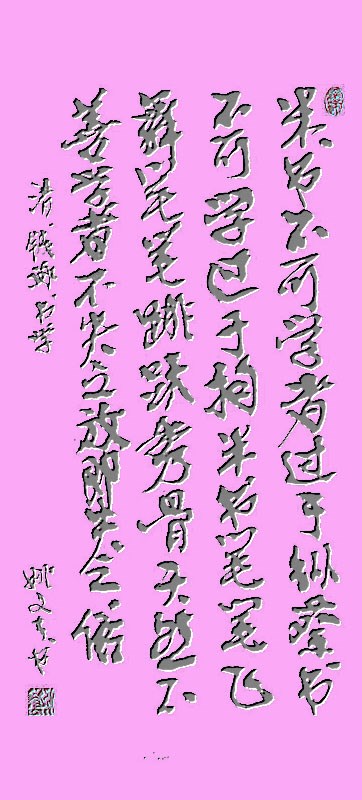 米书不可学者过于纵蔡书
不可学过于拘米书笔笔飞
舞笔笔跳跃秀骨天然不
善学者不失之放即失之俗
清钱泳书学